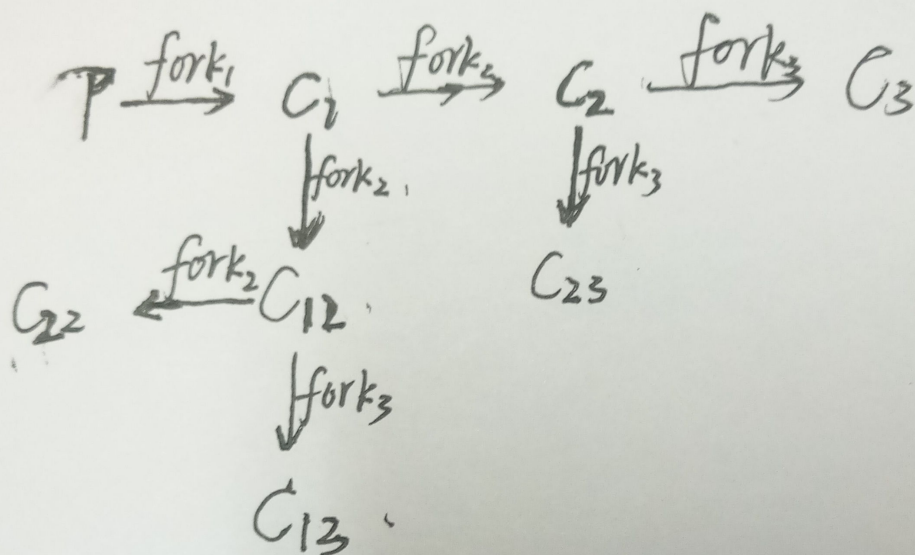 P fork₁ C₁ fork₂ C₂ fork₃ C₃
fork₂ fork₃
C₂₂ fork₂ C₁₂ C₂₃
fork₃
C₁₃